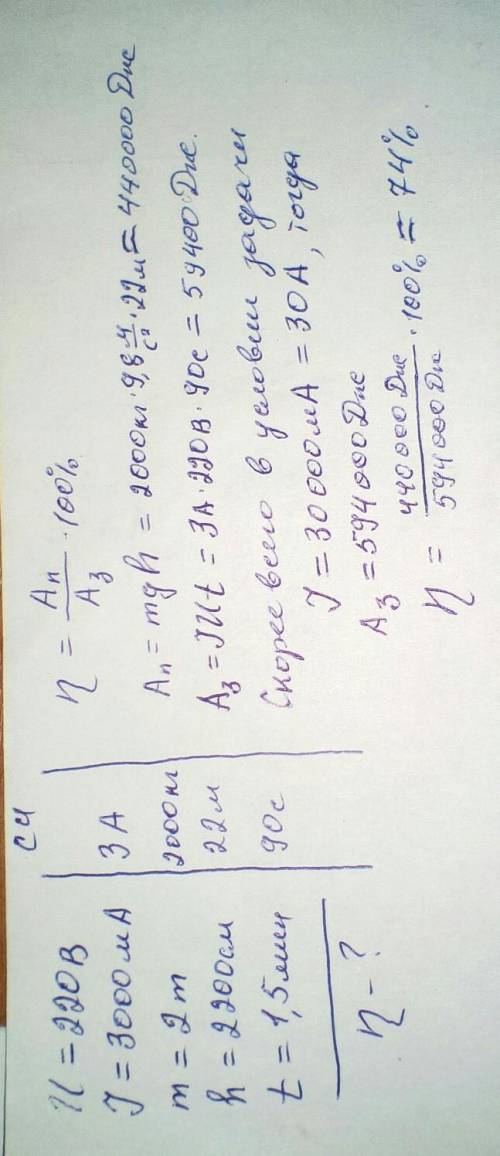 СИ
U = 220В
J = 3000мА
3А
m = 2т
2000кг
h = 2200см
22м
t = 1,5мин
90с
η - ?
η = Aп/Aз · 100%
Aп = mgh = 2000кг · 9,8 Н/с² · 22м = 440000 Дж
Aз = JUt = 3А · 220В · 90с = 59400 Дж.
Скорее всего в условии задачи
J = 30000мА = 30А, тогда
Aз = 594000 Дж
η = 440000 Дж/594000 Дж · 100% = 74%